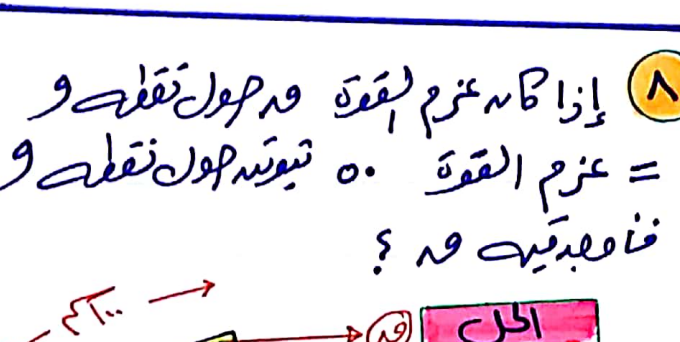 ٨ إذا كان عزم القوة ق حول نقطه و
= عزم القوة ٥٠ نيوتن حول نقطه و
فأوجد قيمه ق ؟
١٠٠ سم
ق
الحل